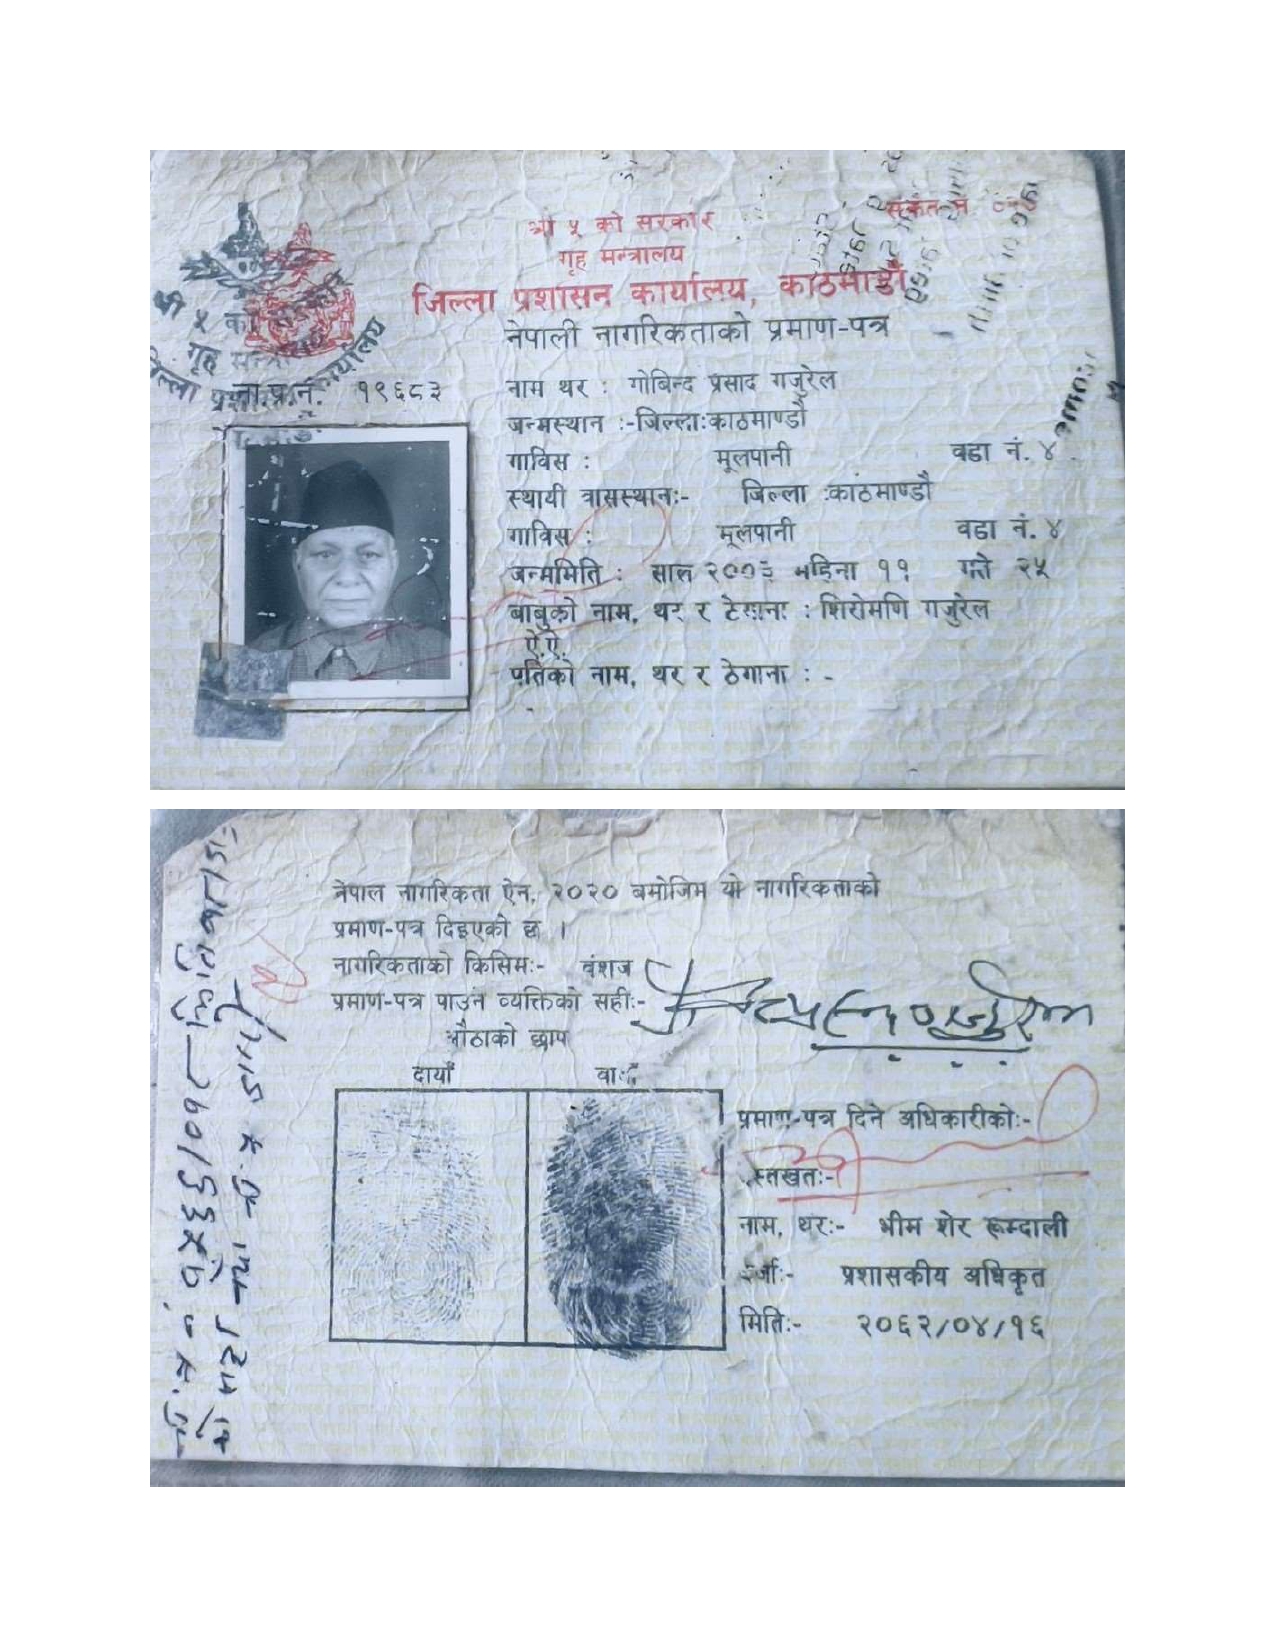 श्री ५ को सरकार
गृह मन्त्रालय
जिल्ला प्रशासन कार्यालय, काठमाडौं
नेपाली नागरिकताको प्रमाण-पत्र
ना.प्र.नं. १९६८३
नाम थर : गोबिन्द प्रसाद गजुरेल
जन्मस्थान :-जिल्ला:काठमाण्डौ
गाविस : मूलपानी वडा नं. ४
स्थायी वासस्थान:- जिल्ला :काठमाण्डौ
गाविस : मूलपानी वडा नं. ४
जन्ममिति : साल २००३ महिना ११ गते २५
बाबुको नाम, थर र ठेगाना : शिरोमणि गजुरेल
ऐ.ऐ.
पतिको नाम, थर र ठेगाना : -
नेपाल नागरिकता ऐन, २०२० बमोजिम यो नागरिकताको
प्रमाण-पत्र दिइएको छ ।
नागरिकताको किसिम:- वंशज
प्रमाण-पत्र पाउने व्यक्तिको सही:-
औंठाको छाप
दायाँ
प्रमाण-पत्र दिने अधिकारीको:-
नाम, थर:- भीम शेर रूम्दाली
दर्जा:- प्रशासकीय अधिकृत
मिति:- २०६२/०४/१६